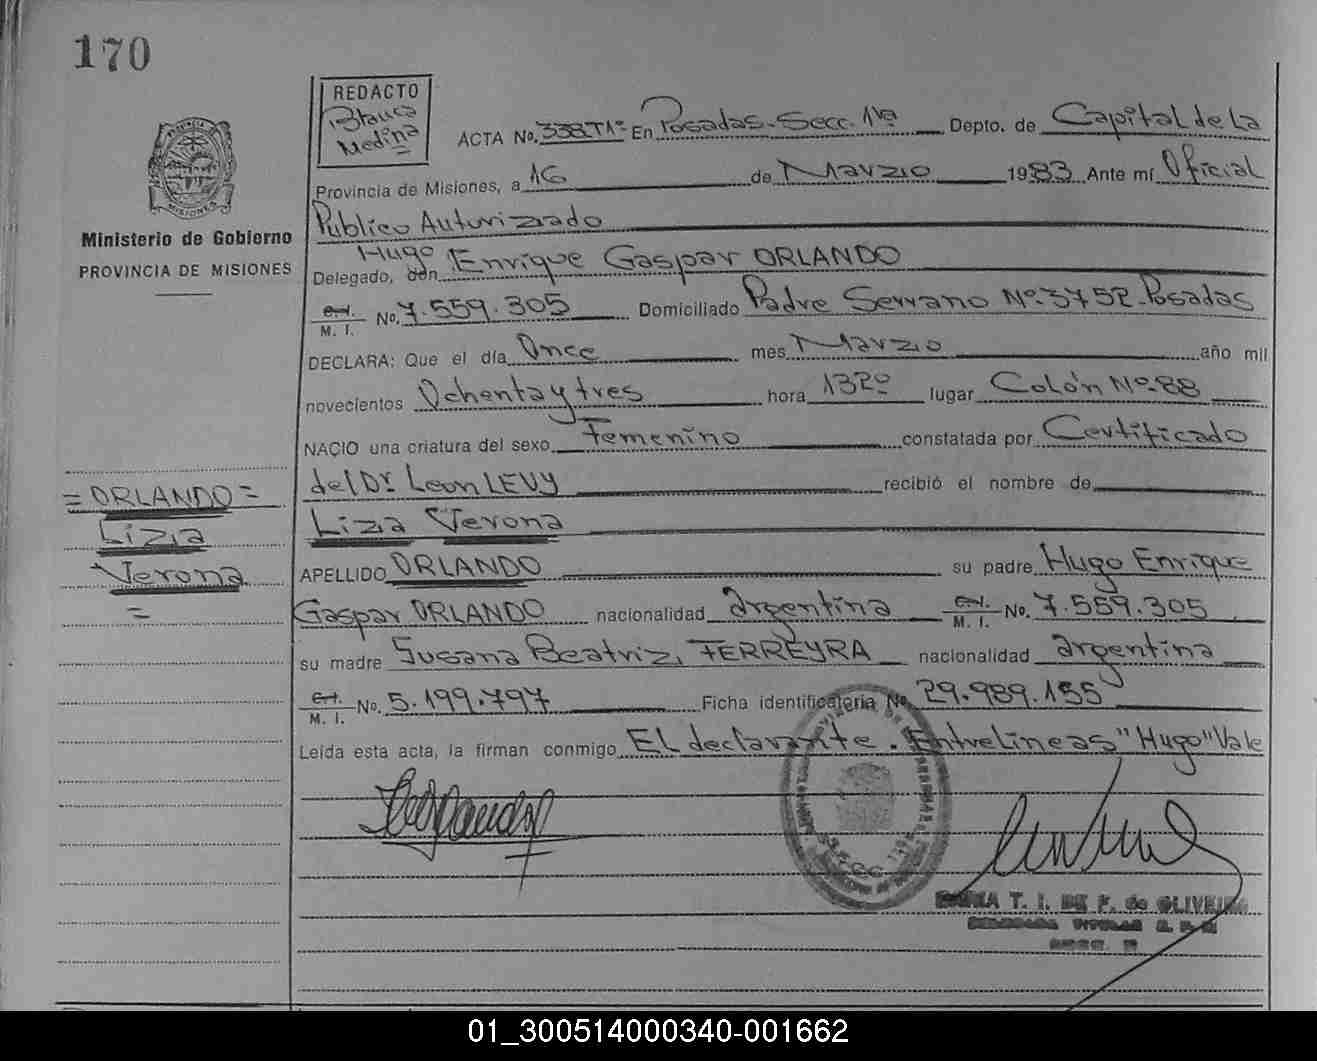 170
REDACTO
Blanca
Medina
ACTA No. 338T1º En Posadas-Secc. 1ra Depto. de Capital de La
Provincia de Misiones, a 16 de Marzo 1983 Ante mí Oficial
Publico Autorizado
Hugo
Delegado, don Enrique Gaspar ORLANDO
M. I. No. 7.559.305 Domiciliado Padre Serrano Nº 3752-Posadas
DECLARA: Que el día Once mes Marzo año mil
novecientos Ochenta y tres hora 13 20 lugar Colón Nº 88
NACIO una criatura del sexo Femenino constatada por Certificado
del Dr. Leon LEVY recibió el nombre de
Lizia Verona
APELLIDO ORLANDO su padre Hugo Enrique
Gaspar ORLANDO nacionalidad argentina M. I. No. 7.559.305
su madre Susana Beatriz FERREYRA nacionalidad argentina
M. I. No. 5.199.797 Ficha identificatoria No 29.989.155
Leída esta acta, la firman conmigo El declarante. Entrelineas "Hugo" Vale
PROVINCIA DE
MISIONES
Ministerio de Gobierno
PROVINCIA DE MISIONES
= ORLANDO =
Lizia
Verona
=
T. I. DE F. de OLIVEIRA
TITULAR
01_300514000340-001662